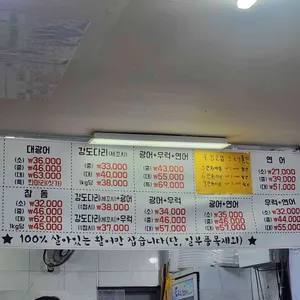 대광어
(소) ₩36,000
(중) ₩46,000
(대) ₩63,000
(특)
강도다리(세꼬시)
(중) ₩33,000
(대) ₩40,000
1kg당 ₩38,000
광어+우럭+연어
(중) ₩43,000
(대) ₩55,000
(특) ₩69,000
연어
(소) ₩21,000
(중) ₩39,000
(대) ₩51,000
참돔
(소) ₩32,000
(중) ₩46,000
1kg당 ₩45,000
강도다리(세꼬시)+광어
(1접시) ₩38,000
강도다리(세꼬시)+우럭
(1접시) ₩37,000
광어+우럭
(소) ₩34,000
(중) ₩46,000
(대) ₩57,000
광어+연어
(소) ₩35,000
(중) ₩48,000
(대) ₩57,000
우럭+연어
(소) ₩32,000
(중) ₩44,000
(대) ₩55,000
★ 100% 살아있는 활어만 잡습니다(단, 일부품목제외)